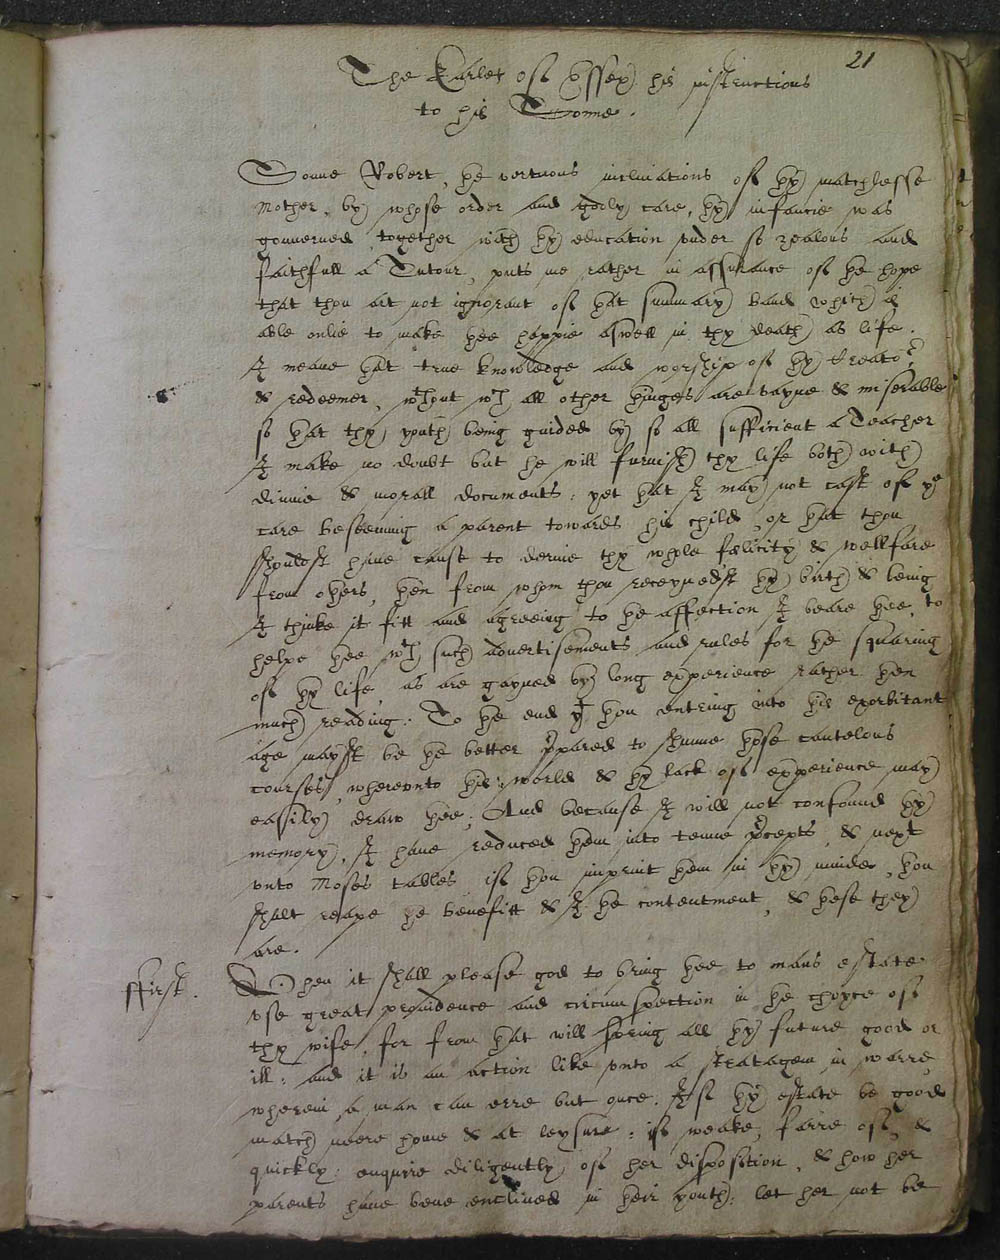 21
The Earles off Essex his instructions
to his Sonne.
Sonne Robert, the vertuous inclinations off thy matchlesse
Mother, by whose order and godly care, thy infancie was
gouverned, together with thy education vnder so zealous and
faithfull a Tutour, puts me rather in assurance off the hope
that thou art not ignorant off that summary band which is
able onlie to make thee happie aswell in thy death as life.
I meane that true knowledge and worship off thy Creator
& redeemer, wthout wch all other thinges are vayne & miserable
so that thy youth being guided by so all sufficient a Teacher
I make no doubt but he will furnish thy life both with
divine & morall documents, yet that I may not cast off ye
care beseeming a parent towards his child or that thou
shouldst haue cause to derive thy whole fælicity & wellfare
from others, then from whom thou receyvedst thy birth & being
I thinke it fitt and agreeing to the affection I beare thee, to
helpe thee wth such advertisements and rules for the squaring
off thy life, as are gayned by long experience rather then
much reading. To the end yt thou entring into this exorbitant
age mayst be the better ppared to shunne those cautelous
courses, wherevnto this world & thy lack off experience may
easily draw thee; And because I will not confound thy
memory, I haue reduced them into tenne pcepts, & next
vnto Moses tables, iff thou imprint them in thy minde, thou
shalt reape the benefitt & I the contentment, & these they
are.
ffirst. When it shall please god to bring thee to mans estate
vse great providence and circumspection in the choyce off
thy wife, for from that will spring all thy future good or
ill: and it is an action like vnto a stratagem in warre
wherein a man can erre but once. Iff thy estate be good
match neere home & at leysure: iff weake, farre off, &
quickly: enquire diligently, off her disposition, & how her
parents haue bene enclined in their youth: let her not be